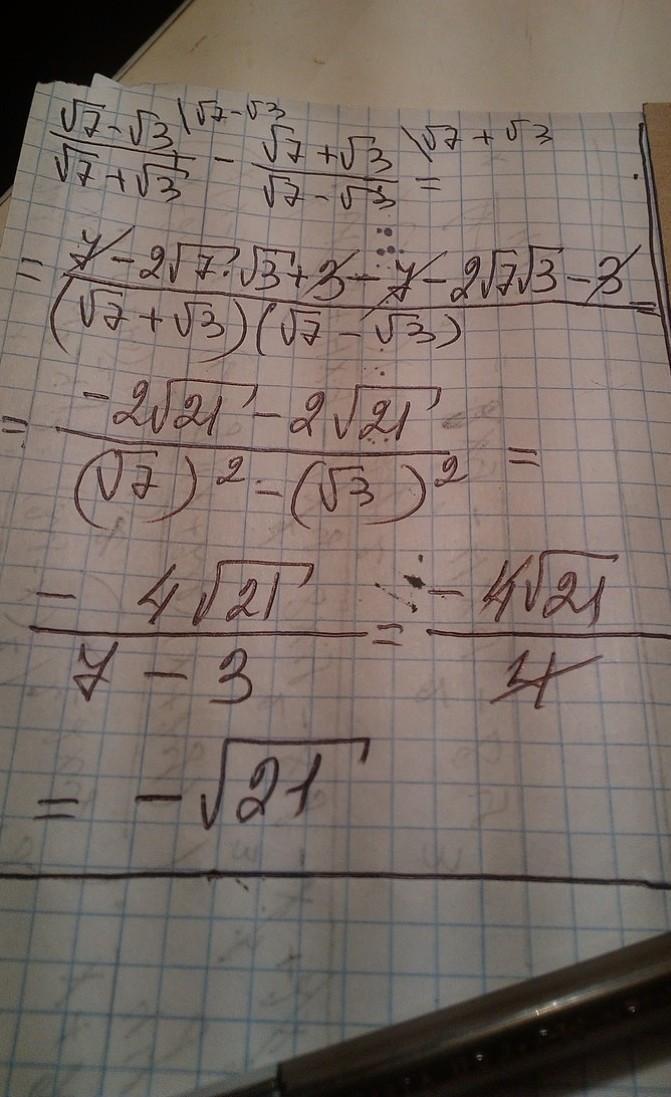 (√7-√3)/(√7+√3) \√7-√3 - (√7+√3)/(√7-√3) \√7+√3 =
= (7-2√7·√3+3-7-2√7√3-3)/((√7+√3)(√7-√3)) =
= (-2√21-2√21)/((√7)²-(√3)²) =
(-4√21)/(7-3) = (-4√21)/4
= -√21